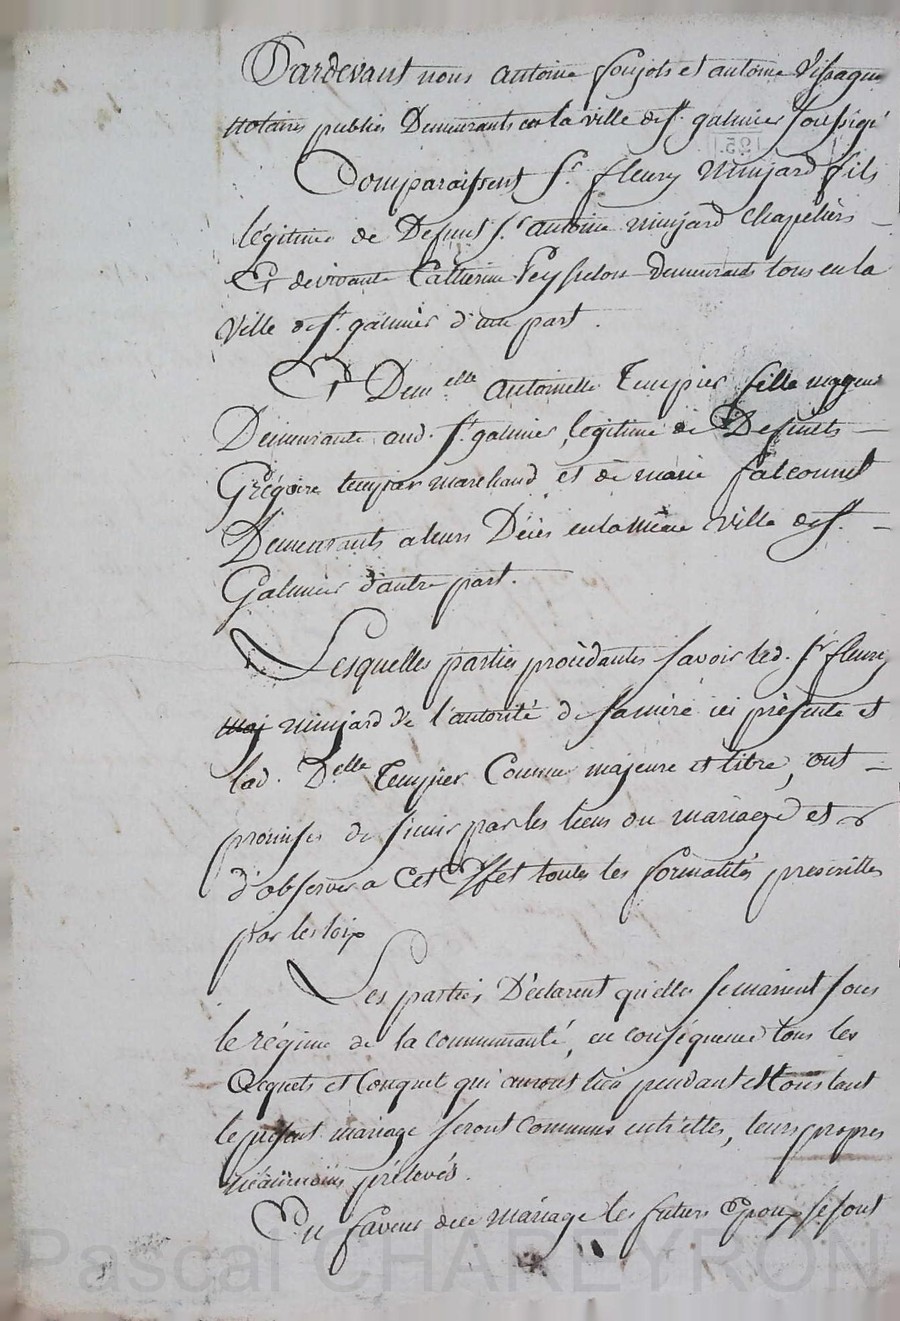 Pardevant nous antoine foujols et antoine
notaires publics Demeurants en la ville de St. galmier soussigé
Comparaissent Sr. fleury Minjard fils
légitime de Defunt Sr. antoine minjard chapeliér
Et de vivante Catherine Peysselon Demeurants tous en la
Ville de St. galmier d'une part.
Et Demelle antoinette Tempier fille mageure
Demeurante aud. St. galmier, légitime de Defunts
Grégoire tempier marchand et de marie falconnet
Demeurants a leurs Décés en la même ville de St.
Galmier d'autre part.
Lesquelles parties procédantes savoir led. Sr fleury
minjard de l'autorité de sa mére ici présente et
lad. Delle Tempier Comme majeure et libre, ont
promises de s'unir par les liens du mariage et
d'observer a Cet Effet toutes les formalités prescrittes
par les loix
Les parties Déclarent qu'elles se marient sous
le régime de la communauté, en conséquence tous les
Acquets et Conquet qui auront lieu pendant et Constant
le présent mariage seront Communs entr'elles, leurs propres
néanmoins prélevés.
En faveur de ce mariage les futurs Epoux se font
Pascal CHAREYRON